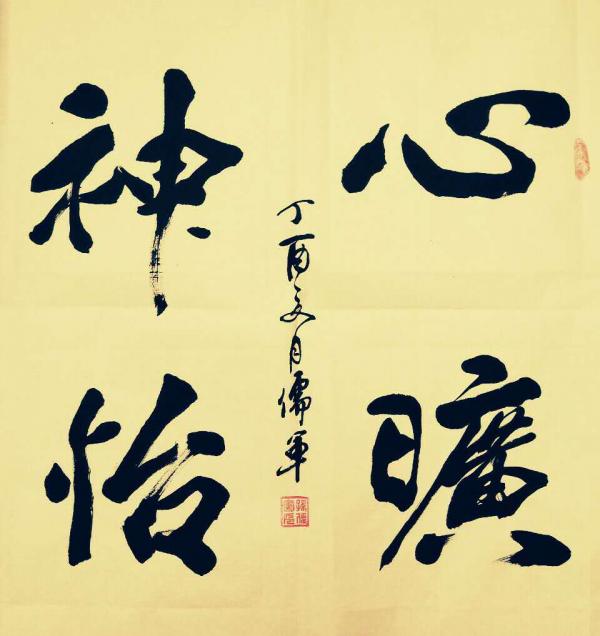 心曠
神怡
丁酉夏月儒军